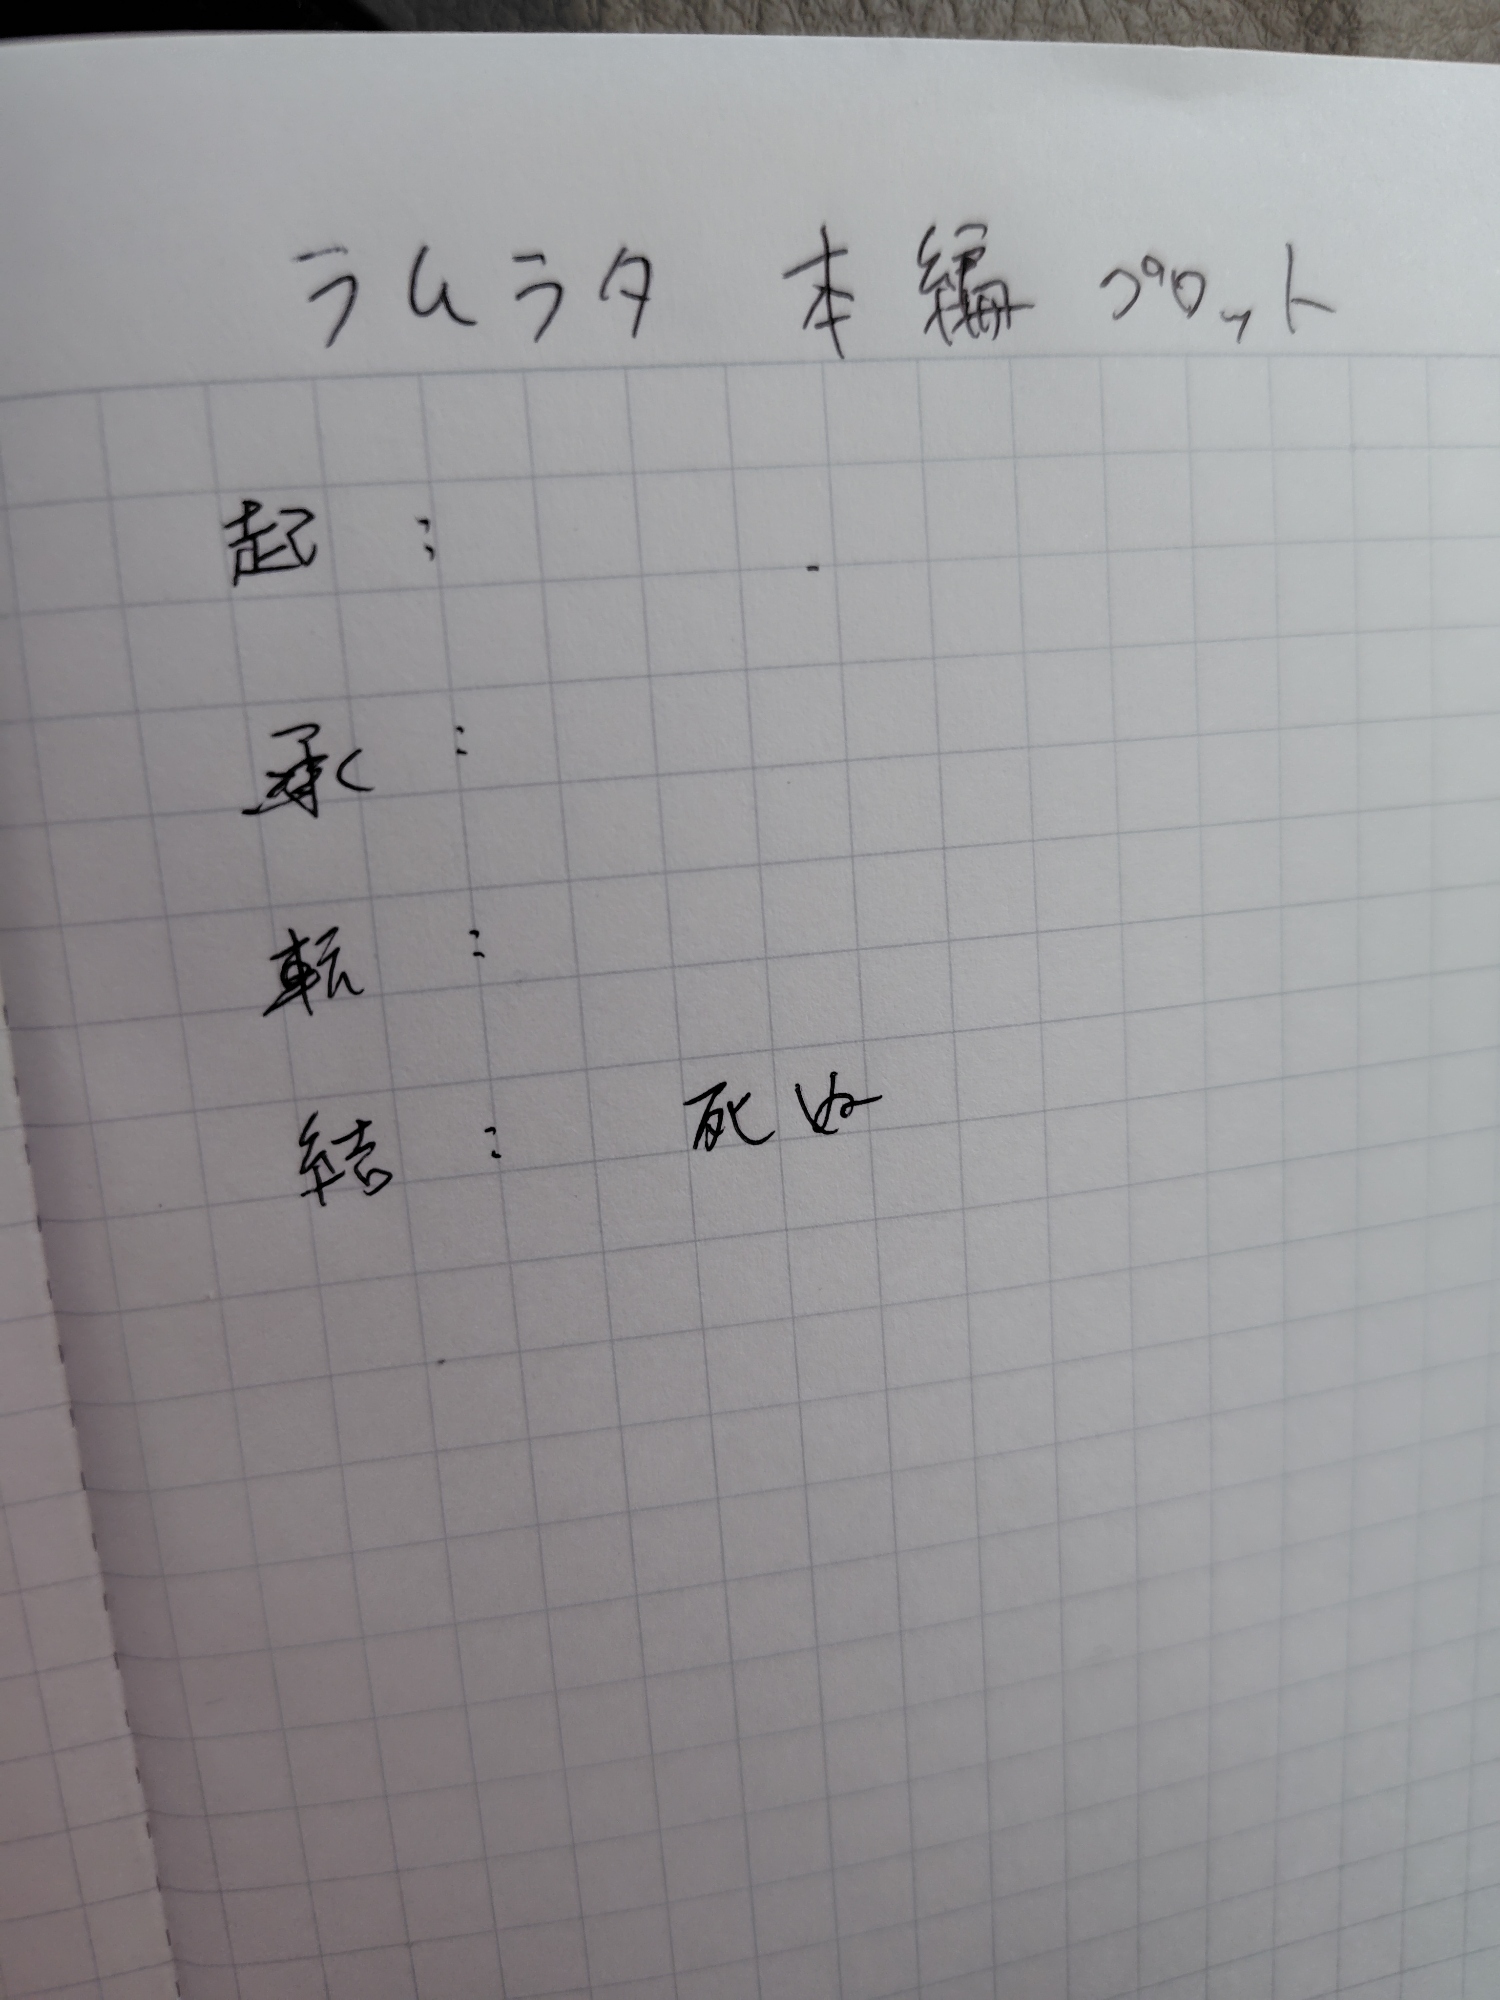 ラムラタ 本編 プロット
起:
承:
転:
結: 死ぬ